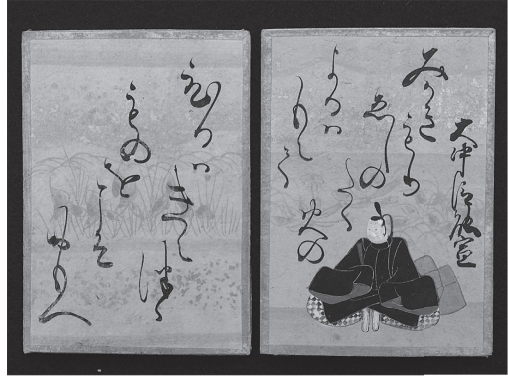 大中臣能宣
みかきもり
ゑしの
たく
火の
よるハ
もえて
ひるハ
きえつゝ
ものを
こそ
おもへ